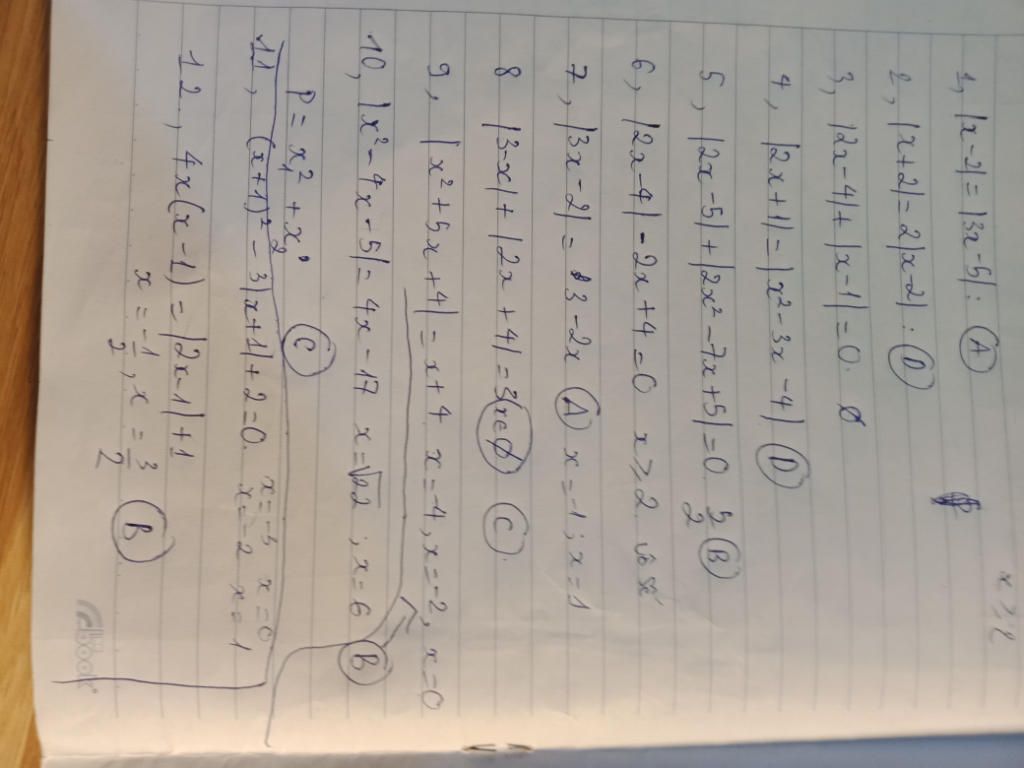 x ≥ 2
1, |x-2| = |3x-5|: (A)
2, |x+2| = 2|x-2|: (D)
3, |2x-4| + |x-1| = 0. ∅
4, |2x+1| = |x²-3x-4| (D)
5, |2x-5| + |2x²-7x+5| = 0 5/2 (B)
6, |2x-4| - 2x+4 = 0 x ≥ 2
7, |3x-2| = 3-2x (A) x=-1; x=1
8 |3-x| + |2x+4| = 3 x∈∅ (C).
9, |x²+5x+4| = x+4 x=-4, x=-2, x=0
10, |x²-4x-5| = 4x-17 x=√22; x=6 (B)
P = x₁² + x₂² (C)
11, (x+1)² - 3|x+1| + 2 = 0. x=-3 x=0
x=-2 x=1
12, 4x(x-1) = |2x-1| + 1
x = -1/2, x = 3/2 (B)